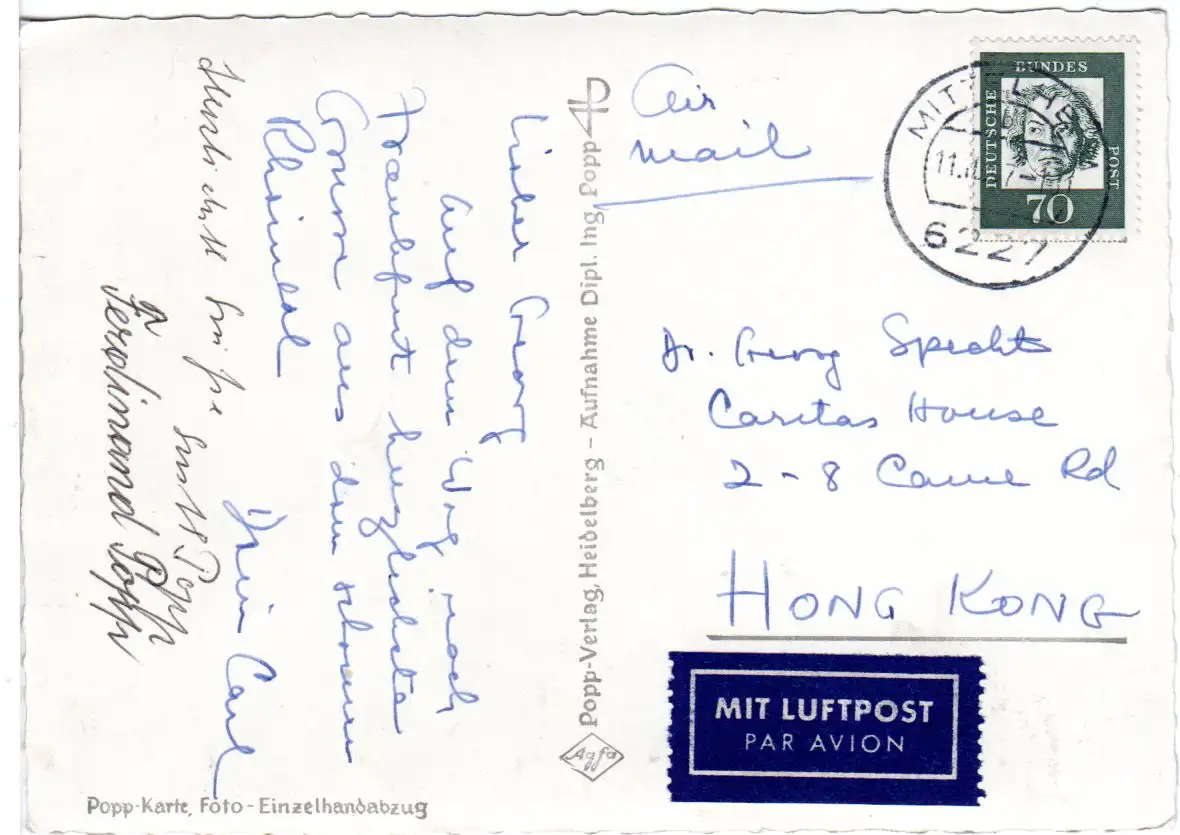 Lieber Georg
Auf dem Weg nach
Frankfurt herzlichste
Grüsse aus dem schönen
Rheintal
Dein Carl
Herzlichst Grüße
Popp
Ferdinand Popp
Popp-Verlag, Heidelberg – Aufnahme Dipl. Ing. Popp
Agfa
Popp-Karte, Foto-Einzelhandabzug
Air
mail
DEUTSCHE BUNDES POST
70
6227
Dr. Georg Specht
Caritas House
2-8 Caine Rd
HONG KONG
MIT LUFTPOST
PAR AVION